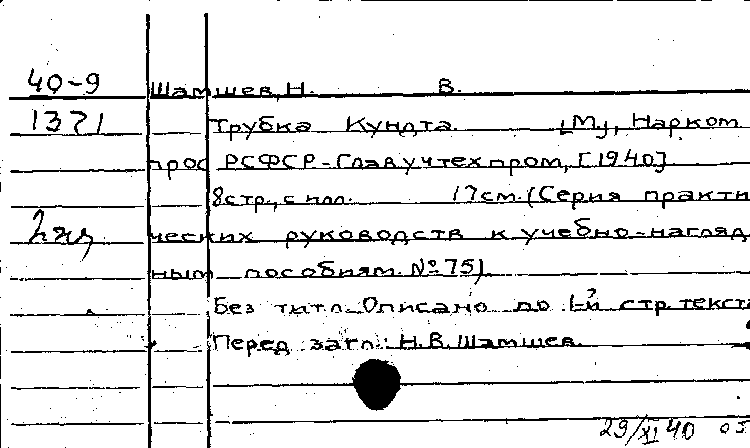 40-9 Шамшев, Н. В.
1371 Трубка Кундта. [М], Нарком
прос РСФСР-Главучтехпром, [1940]
8стр., с илл. 17см. (Серия практи
2 экз ческих руководств к учебно-нагляд
ным пособиям. № 75)
Без титл. Описано по 1-й стр. текста
Перед загл.: Н.В. Шамшев.
29/XI 40